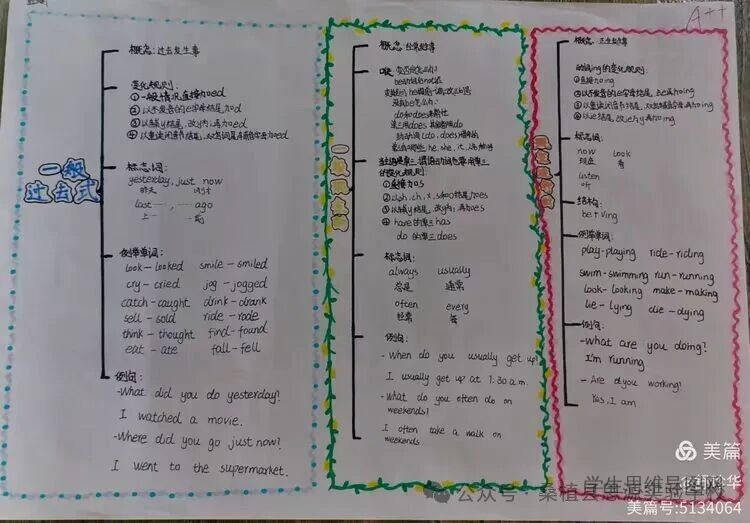 A++
一般
过去式
概念：过去发生事
变化规则：
①一般情况直接加ed
②以不发音的e字母结尾加d
③以辅y结尾,改y为i再加ed
④以重读闭音节结尾,双写词尾再加ed
标志词：
yesterday, just now
昨天 刚才
last …, … ago
上一 … 前
例举单词：
look – looked smile – smiled
cry – cried jog – jogged
catch – caught drink – drank
sell – sold ride – rode
think – thought find – found
eat – ate fall – fell
例句：
-What did you do yesterday?
I watched a movie.
-Where did you go just now?
I went to the supermarket.
概念：经常的事
的变化规则：
①直接加s
②以sh, ch, x, s和o结尾加es
③以辅y结尾,改y为i,再加es
④have的第三has
do的第三does
标志词：
always usually
总是 通常
often every
经常 每
例句：
-When do you usually get up?
I usually get up at 7:30 a.m.
-What do you often do on
weekends?
I often take a walk on
weekends.
概念：正发生事
动词ing的变化规则：
①直接加ing
②以不发音的e字母结尾,去e再加ing
④以ie结尾,改ie为y再加ing
标志词：
now look
现在 看
listen
听
结构：
be+Ving
例举单词：
play – playing ride – riding
swim – swimming run – running
look – looking make – making
lie – lying die – dying
例句：
-what are you doing?
I'm running
- Are you working?
Yes, I am
美篇
学生思维导图
公众号·桑植县
美篇号:5134064